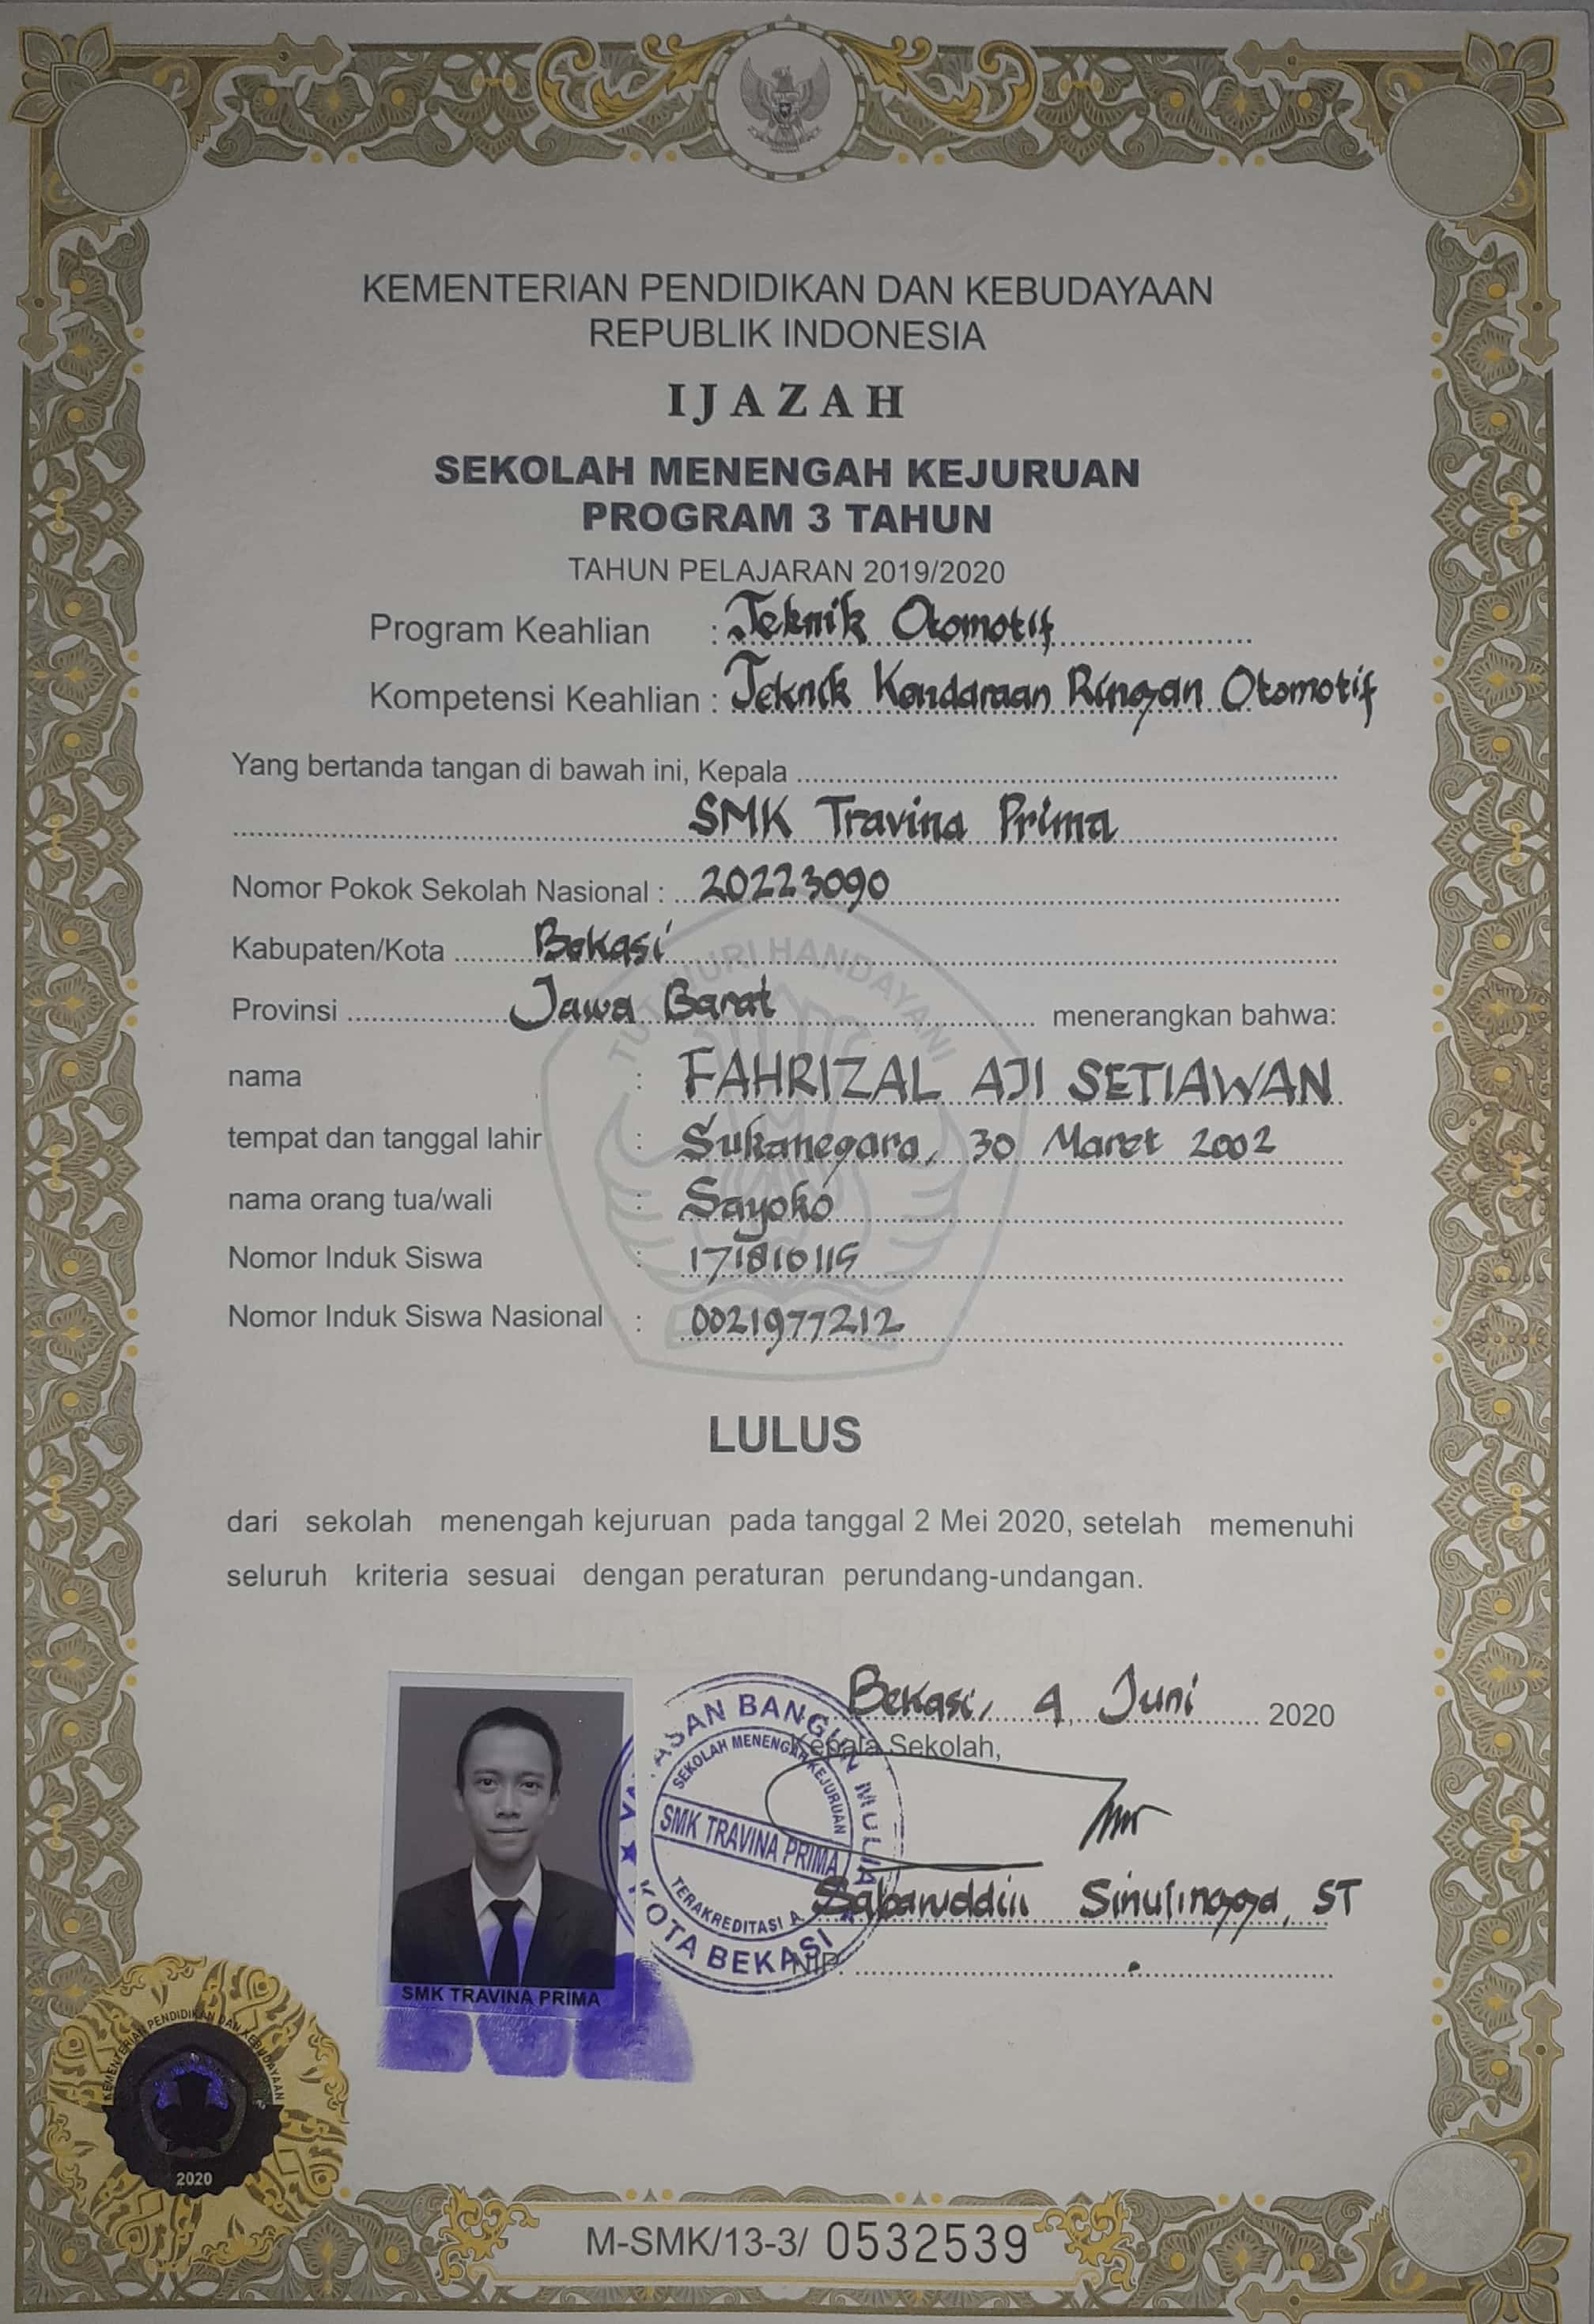 KEMENTERIAN PENDIDIKAN DAN KEBUDAYAAN
REPUBLIK INDONESIA
IJAZAH
SEKOLAH MENENGAH KEJURUAN
PROGRAM 3 TAHUN
TAHUN PELAJARAN 2019/2020
Program Keahlian : Teknik Otomotif
Kompetensi Keahlian : Teknik Kendaraan Ringan Otomotif
Yang bertanda tangan di bawah ini, Kepala
SMK Travina Prima
Nomor Pokok Sekolah Nasional : 20223090
Kabupaten/Kota Bekasi
TUT WURI HANDAYANI
Provinsi Jawa Barat menerangkan bahwa:
nama : FAHRIZAL AJI SETIAWAN
tempat dan tanggal lahir : Sukanegara, 30 Maret 2002
nama orang tua/wali : Sayoko
Nomor Induk Siswa : 171810115
Nomor Induk Siswa Nasional : 0021977212
LULUS
dari sekolah menengah kejuruan pada tanggal 2 Mei 2020, setelah memenuhi
seluruh kriteria sesuai dengan peraturan perundang-undangan.
Bekasi, 4 Juni 2020
Kepala Sekolah,
YAYASAN BANGUN MULIA
SEKOLAH MENENGAH KEJURUAN
SMK TRAVINA PRIMA
TERAKREDITASI A
KOTA BEKASI
Sabaruddin Sinulingga, ST
NIP.
SMK TRAVINA PRIMA
KEMENTERIAN PENDIDIKAN DAN KEBUDAYAAN
2020
M-SMK/13-3/ 0532539